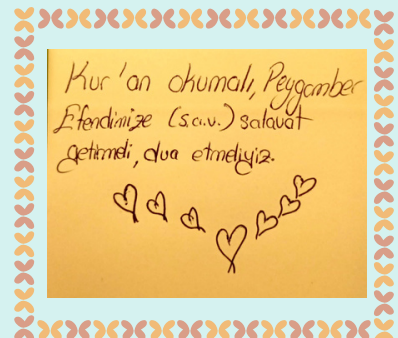 Kur'an okumalı, Peygamber
Efendimize (s.a.v.) salavat
getirmeli, dua etmeliyiz.